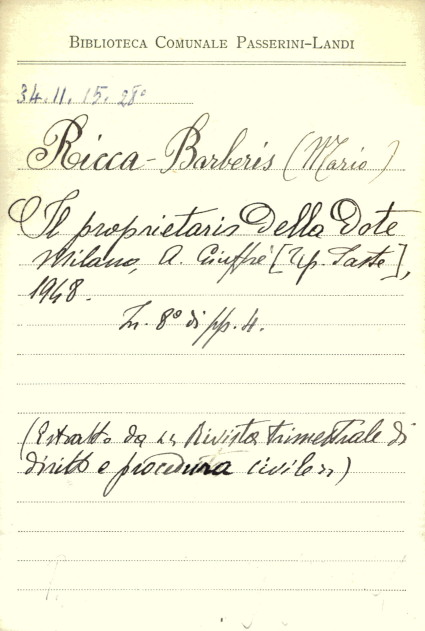 BIBLIOTECA COMUNALE PASSERINI-LANDI
34.11.15.28°
Ricca-Barberis (Mario)
Il proprietario della dote
Milano, A. Giuffrè [Tip. Saste],
1948.
In. 8° di pp. 4.
(Estratto da "Rivista trimestrale di
diritto e procedura civile")